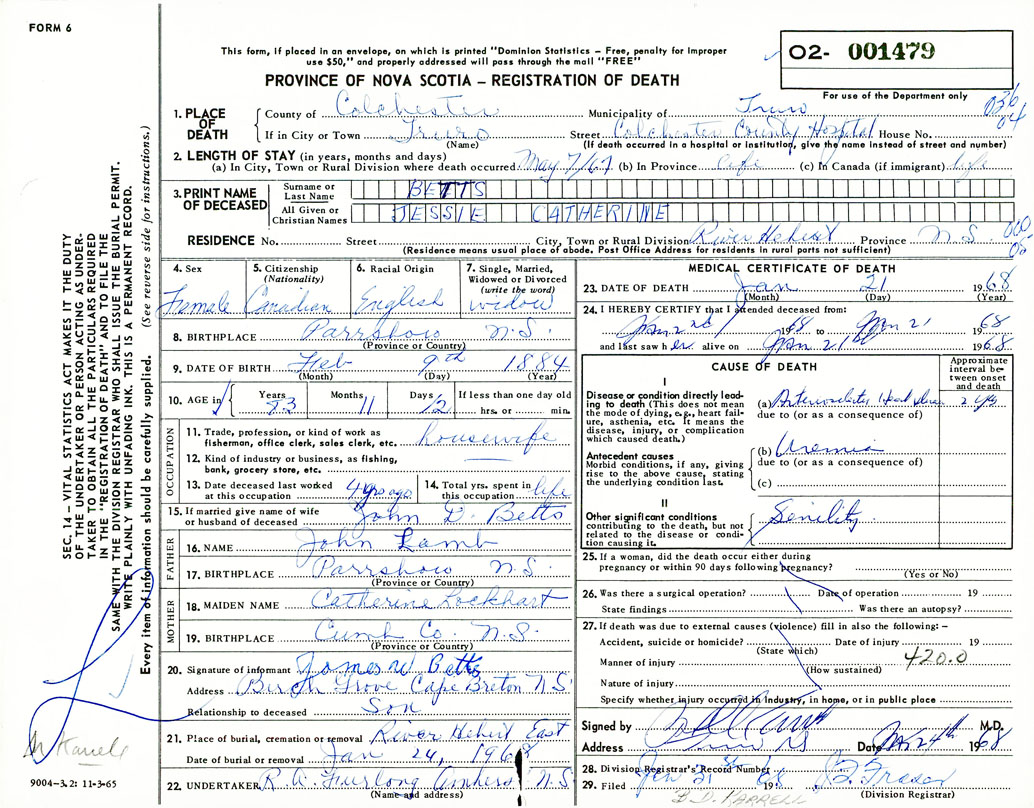 FORM 6
This form, if placed in an envelope, on which is printed "Dominion Statistics – Free, penalty for improper
use $50," and properly addressed will pass through the mail "FREE"
O2- 001479
For use of the Department only
PROVINCE OF NOVA SCOTIA – REGISTRATION OF DEATH
036
04
1. PLACE OF DEATH
County of Colchester Municipality of Truro
If in City or Town Truro Street Colchester County Hospital House No.
(Name) (If death occurred in a hospital or institution, give the name instead of street and number)
2. LENGTH OF STAY (in years, months and days)
(a) In City, Town or Rural Division where death occurred May 7/67 (b) In Province life (c) In Canada (if immigrant) life
3. PRINT NAME OF DECEASED
Surname or Last Name BETTS
All Given or Christian Names JESSIE CATHERINE
RESIDENCE No. Street City, Town or Rural Division River Hebert Province N.S.
(Residence means usual place of abode. Post Office Address for residents in rural parts not sufficient)
4. Sex Female
5. Citizenship (Nationality) Canadian
6. Racial Origin English
7. Single, Married, Widowed or Divorced (write the word) widow
8. BIRTHPLACE Parrsboro N.S.
(Province or Country)
9. DATE OF BIRTH Feb 9th 1884
(Month) (Day) (Year)
10. AGE in Years 83 Months 11 Days 12 If less than one day old
hrs. or min.
OCCUPATION
11. Trade, profession, or kind of work as
fisherman, office clerk, sales clerk, etc. housewife
12. Kind of industry or business, as fishing,
bank, grocery store, etc.
13. Date deceased last worked
at this occupation 4 yrs ago
14. Total yrs. spent in
this occupation life
15. If married give name of wife
or husband of deceased John D. Betts
FATHER
16. NAME John Lamb
17. BIRTHPLACE Parrsboro N.S.
(Province or Country)
MOTHER
18. MAIDEN NAME Catherine Lockhart
19. BIRTHPLACE Cumb Co. N.S.
(Province or Country)
20. Signature of informant James W Betts
Address Birch Grove Cape Breton N S
Relationship to deceased Son
21. Place of burial, cremation or removal River Hebert East
Date of burial or removal Jan 24, 1968
22. UNDERTAKER R. A. Furlong Amherst N.S.
(Name and address)
MEDICAL CERTIFICATE OF DEATH
23. DATE OF DEATH Jan 21 1968
(Month) (Day) (Year)
24. I HEREBY CERTIFY that I attended deceased from:
Jan 2nd 1968 to Jan 21 68
and last saw her alive on Jan 21st 1968
CAUSE OF DEATH
Approximate interval between onset and death
I
Disease or condition directly leading to death (This does not mean
the mode of dying, e.g., heart failure, asthenia, etc. It means the
disease, injury, or complication
which caused death.)
(a) Heart 2 yrs
due to (or as a consequence of)
Antecedent causes
Morbid conditions, if any, giving
rise to the above cause, stating
the underlying condition last.
(b) Uremia
due to (or as a consequence of)
(c)
II
Other significant conditions
contributing to the death, but not
related to the disease or condition causing it.
Senility
25. If a woman, did the death occur either during
pregnancy or within 90 days following pregnancy?
(Yes or No)
26. Was there a surgical operation? Date of operation 19
State findings Was there an autopsy?
27. If death was due to external causes (violence) fill in also the following: –
Accident, suicide or homicide? Date of injury 19
(State which)
Manner of injury 420.0
(How sustained)
Nature of injury
Specify whether injury occurred in industry, in home, or in public place
Signed by M.D.
Address Truro NS Date Jan 24th 1968
28. Division Registrar's Record Number
29. Filed Jan 31st 1968 Fraser
(Division Registrar)
B D. PARRELL
SEC. 14 – VITAL STATISTICS ACT MAKES IT THE DUTY
OF THE UNDERTAKER OR PERSON ACTING AS UNDERTAKER TO OBTAIN ALL THE PARTICULARS REQUIRED
IN THE "REGISTRATION OF DEATH" AND TO FILE THE
SAME WITH THE DIVISION REGISTRAR WHO SHALL ISSUE THE BURIAL PERMIT.
WRITE PLAINLY WITH UNFADING INK. THIS IS A PERMANENT RECORD.
Every item of information should be carefully supplied. (See reverse side for instructions.)
9004–3.2: 11-3-65